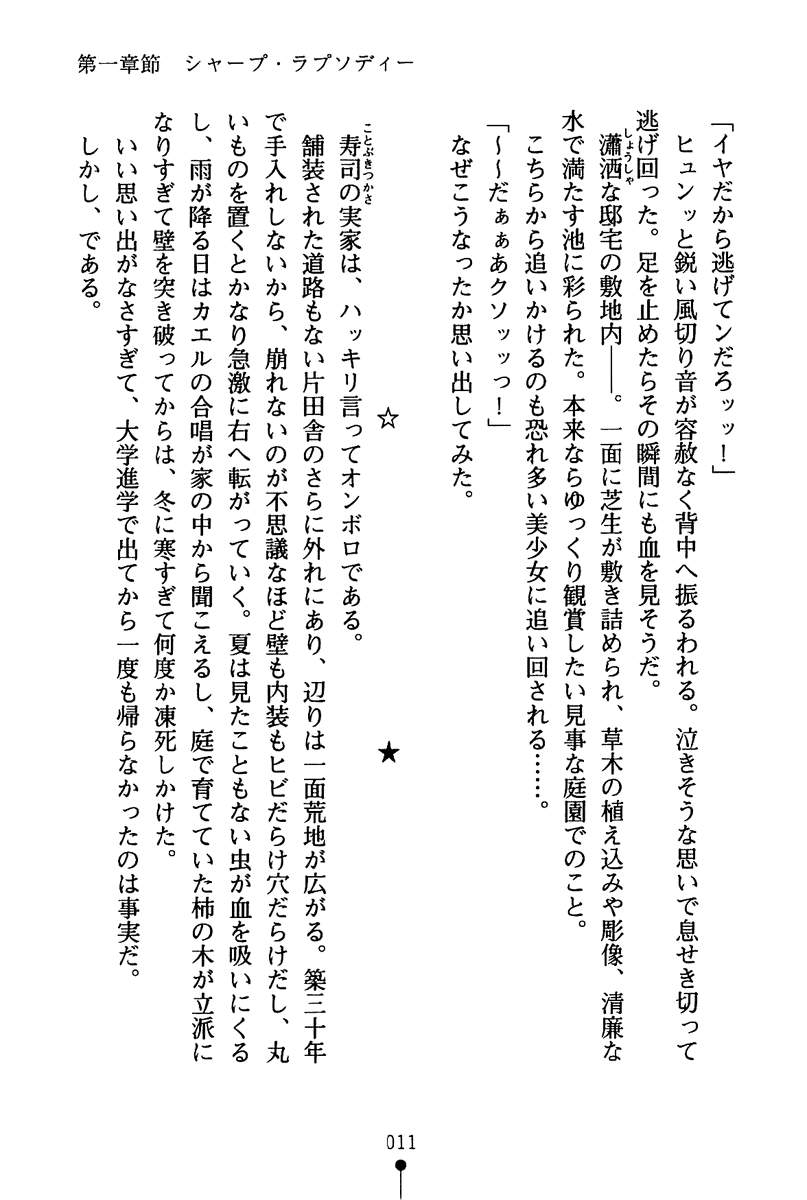 第一章節　シャープ・ラプソディー
「イヤだから逃げてンだろッッ！」
ヒュンッと鋭い風切り音が容赦なく背中へ振るわれる。泣きそうな思いで息せき切って
逃げ回った。足を止めたらその瞬間にも血を見そうだ。
瀟洒な邸宅の敷地内――。一面に芝生が敷き詰められ、草木の植え込みや彫像、清廉な
しょうしゃ
水で満たす池に彩られた。本来ならゆっくり観賞したい見事な庭園でのこと。
こちらから追いかけるのも恐れ多い美少女に追い回される……。
「～～だぁぁあクソッッっ！」
なぜこうなったか思い出してみた。
☆　★
寿司の実家は、ハッキリ言ってオンボロである。
ことぶきつかさ
舗装された道路もない片田舎のさらに外れにあり、辺りは一面荒地が広がる。築三十年
で手入れしないから、崩れないのが不思議なほど壁も内装もヒビだらけ穴だらけだし、丸
いものを置くとかなり急激に右へ転がっていく。夏は見たこともない虫が血を吸いにくる
し、雨が降る日はカエルの合唱が家の中から聞こえるし、庭で育てていた柿の木が立派に
なりすぎて壁を突き破ってからは、冬に寒すぎて何度か凍死しかけた。
いい思い出がなさすぎて、大学進学で出てから一度も帰らなかったのは事実だ。
しかし、である。
011